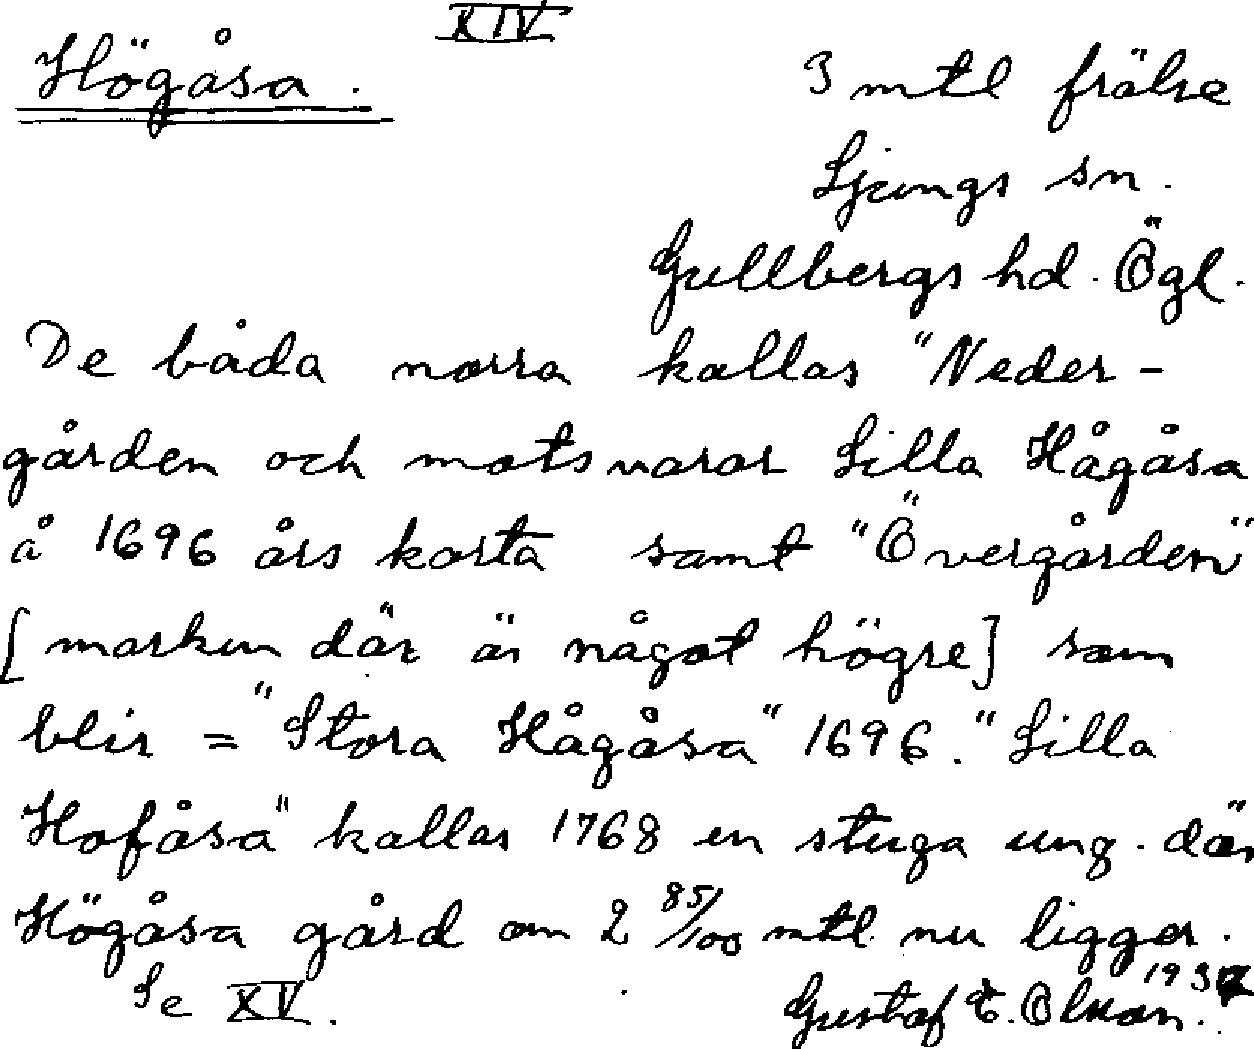 XIV
Högåsa.
3 mtl frälse
Ljungs sn.
Gullbergs hd. Ögl.
De båda norra kallas "Neder-
gården och motsvarar Lilla Hågåsa
å 1696 års karta samt "Övergården"
[marken där är något högre] som
blir = "Stora Hågåsa" 1696. "Lilla
Hofåsa" kallas 1768 en stuga ung. där
Högåsa gård om 2 85/100 mtl nu ligger.
Se XV.
Gustaf E. Olsson. 1937